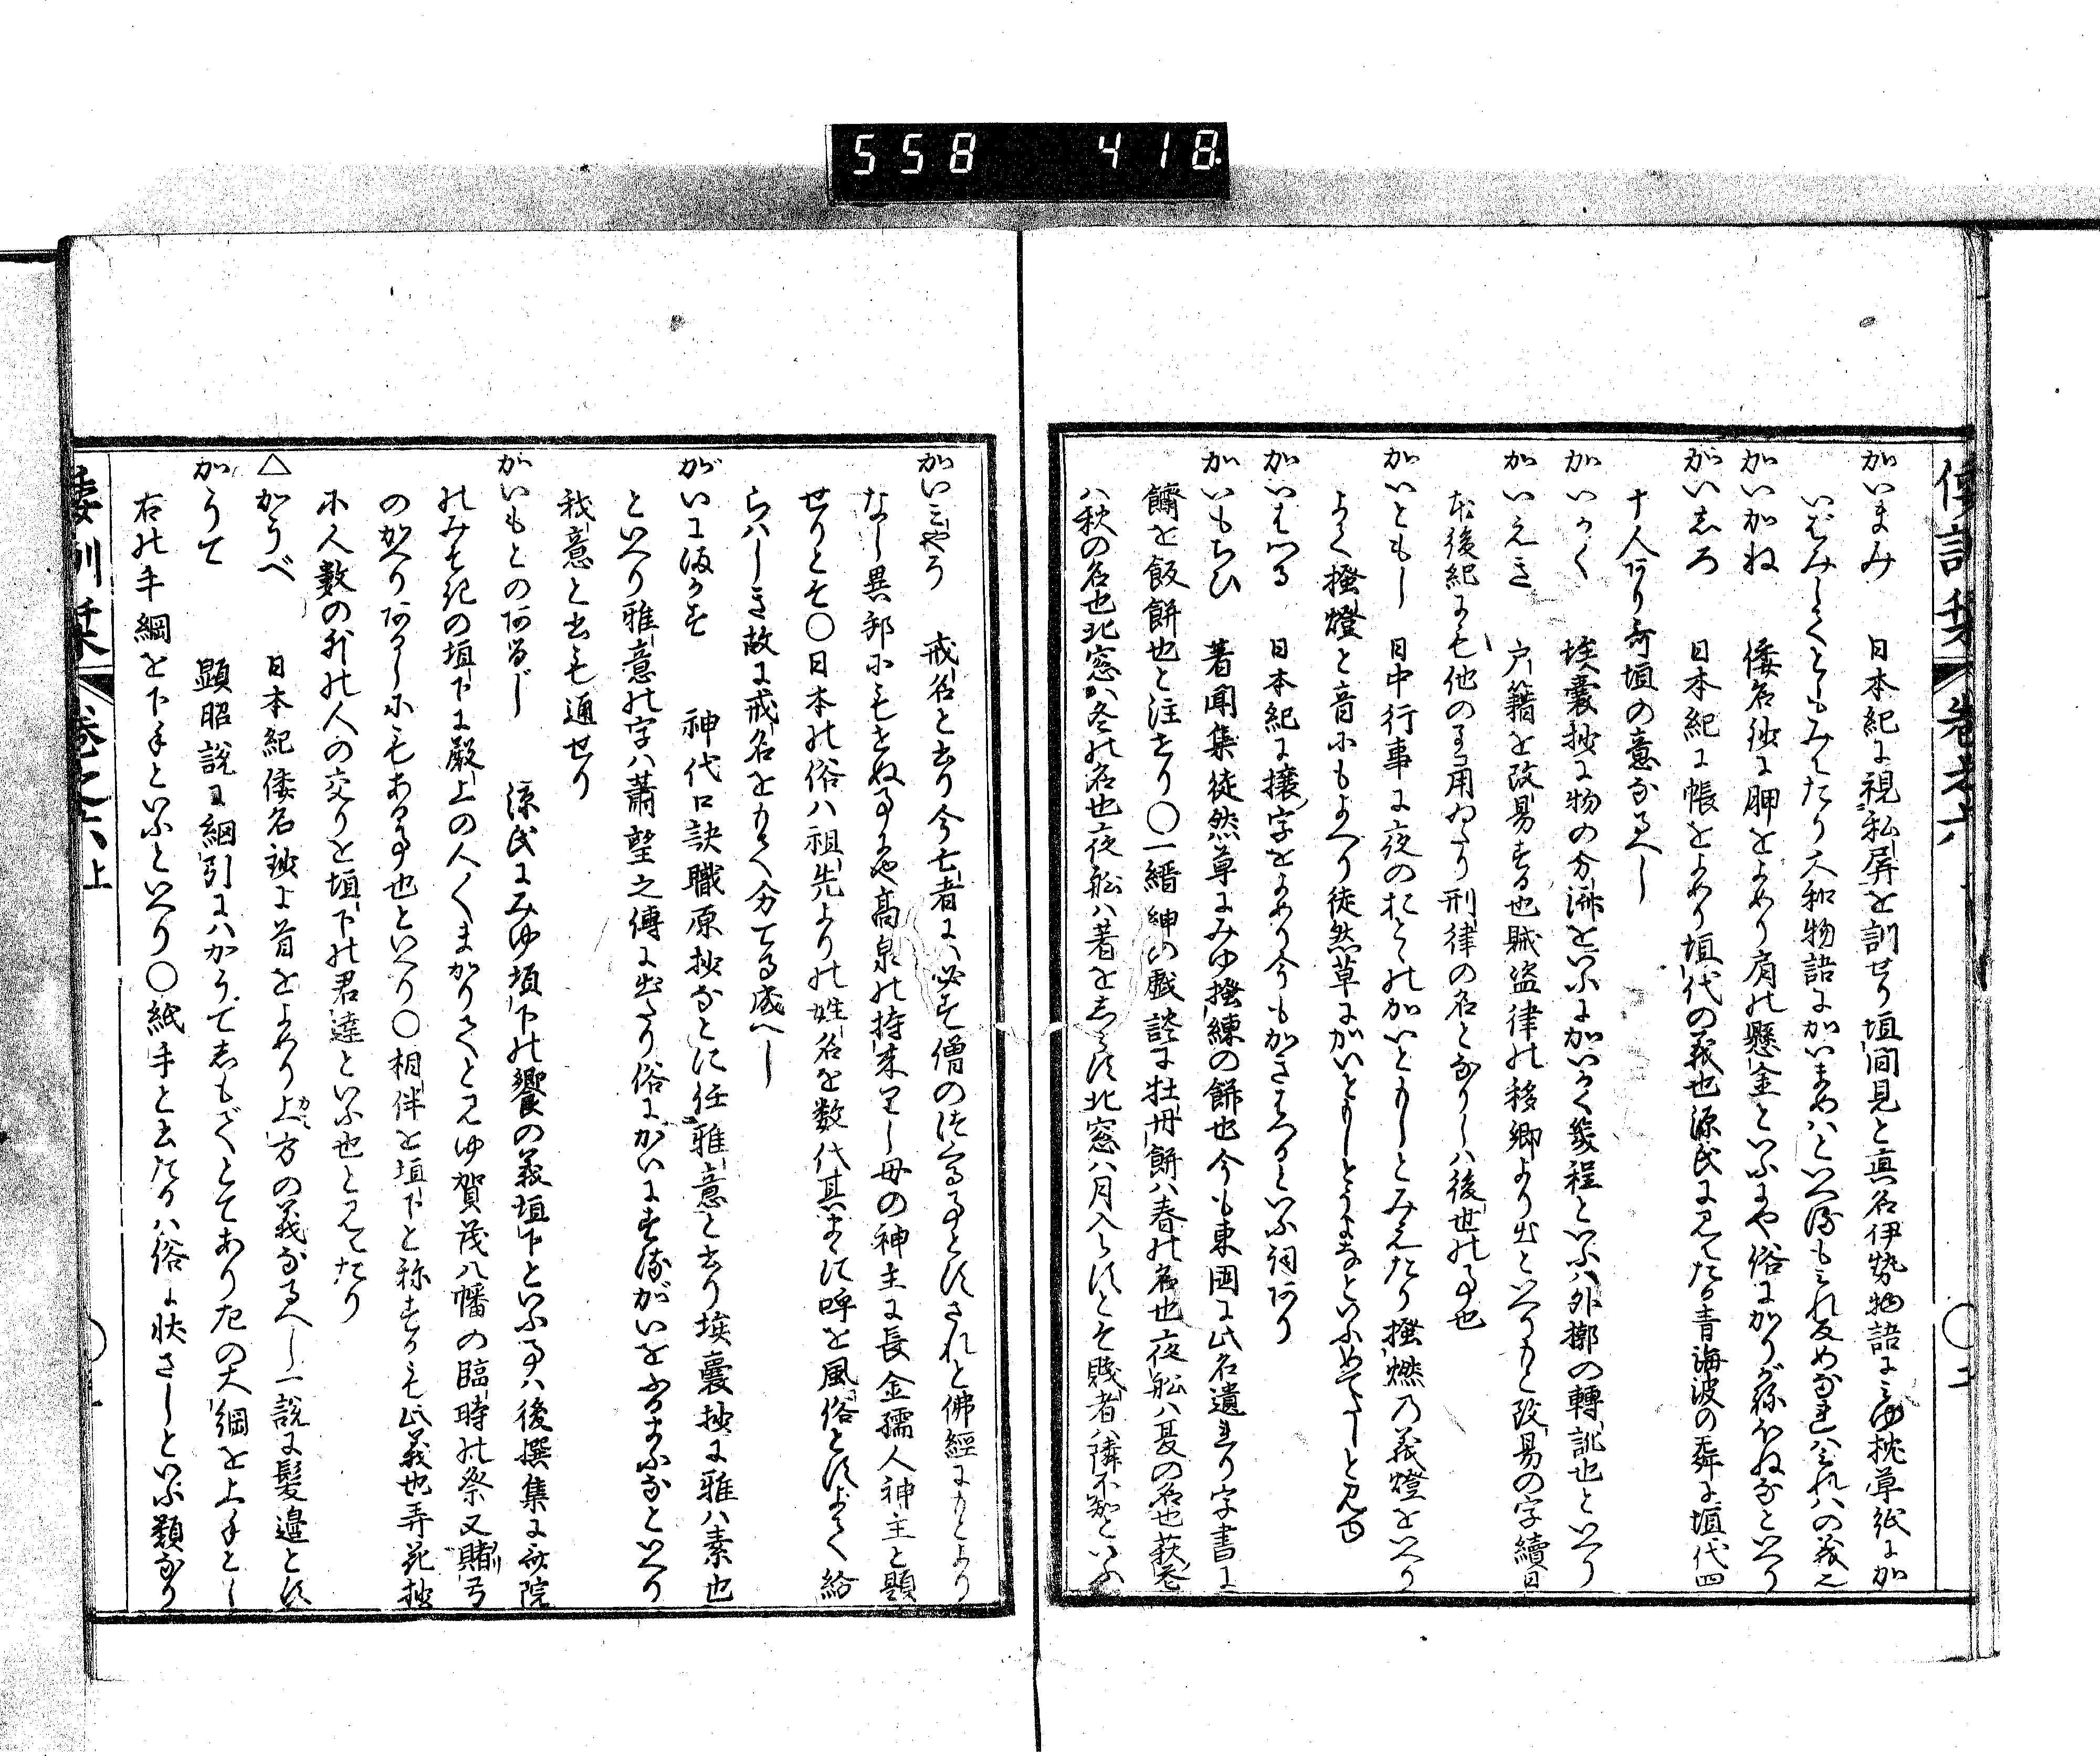 558 418
倭訓栞 卷之六 〇二
かいまみ 日本紀に視私屏を訓せり垣間見と真名伊勢物語にみゆ枕草紙にか
いばみしくともみえたり大和物語にかいまめはといへるもみれ反めなれはみれはの義也
かいかね 倭名鈔に胛をよめり肩の懸金といふにや俗にかりがねほねなといへり
がいしろ 日本紀に帳をよめり垣代の義也源氏に見えたる青海波の舞に垣代四
十人ありき垣の意なるへし
かいかく 埃嚢抄に物の分際をいふにかいかく幾程といふハ外郭の轉訛也といへり
かいえき 戸籍を改易する也賊盗律の移郷より出といへりもと改易の字續日
本後紀にも他の事に用ゐたり刑律の名となりしハ後世の事也
かいともし 日中行事に夜のおとゝのかいともしとみえたり掻燃乃義燈をいへり
よく掻燈と音にもよへり徒然草にかいともしとうよなといふめてたしと見ゆ
かいはつる 日本紀に攘字をよめり今もかきはらふといふ詞あり
かいもちひ 著聞集徒然草にみゆ掻練の餅也今も東國に此名遺れり字書に
餬を飯餅也と注せり〇一縉紳の戯談に牡丹餅ハ春の名也夜舩ハ夏の名也萩花
ハ秋の名也北窓ハ冬の名也夜舩ハ著をしらす北窓ハ月入らすとそ賤者ハ隣不知といふ
かいミやう 戒名と云り今亡者にハ必す僧のつくる事とすされと佛經にもとより
なし異邦にもせぬ事にや高泉の持来りし母の神主に長金孺人神主と題
せりとそ〇日本の俗ハ祖先よりの姓名を数代其まゝに呼を風俗とすよて紛
らハしき故に戒名をもて分てる成へし
がいにまかす 神代口訣職原抄なとに任雅意と云り埃嚢抄に雅ハ素也
といへり雅意の字ハ蕭望之傳に出たり俗にがいにするがいをふるまふなといへり
我意と云も通せり
がいもとのあるじ 源氏にみゆ垣下の饗の義垣下といふ事ハ後撰集に齋院
のみそきの垣下に殿上の人〱まかりてとみゆ賀茂八幡の臨時の祭又賭弓
のかへりあるしにもある事也といへり〇相伴を垣下と称するも此義也弄花抄
に人數の外の人の交りを垣下の君達といふ也と見えたり
△かうべ 日本紀倭名鈔に首をよめり上方の義なるへし一説に髪邉とす
かうて 顕昭説に綱引にハかうてしもてとてあり左の大綱を上手とし
右の手綱を下手といふといへり〇紙手と云たりハ俗に状さしといふ類なり
倭訓栞 卷之六上